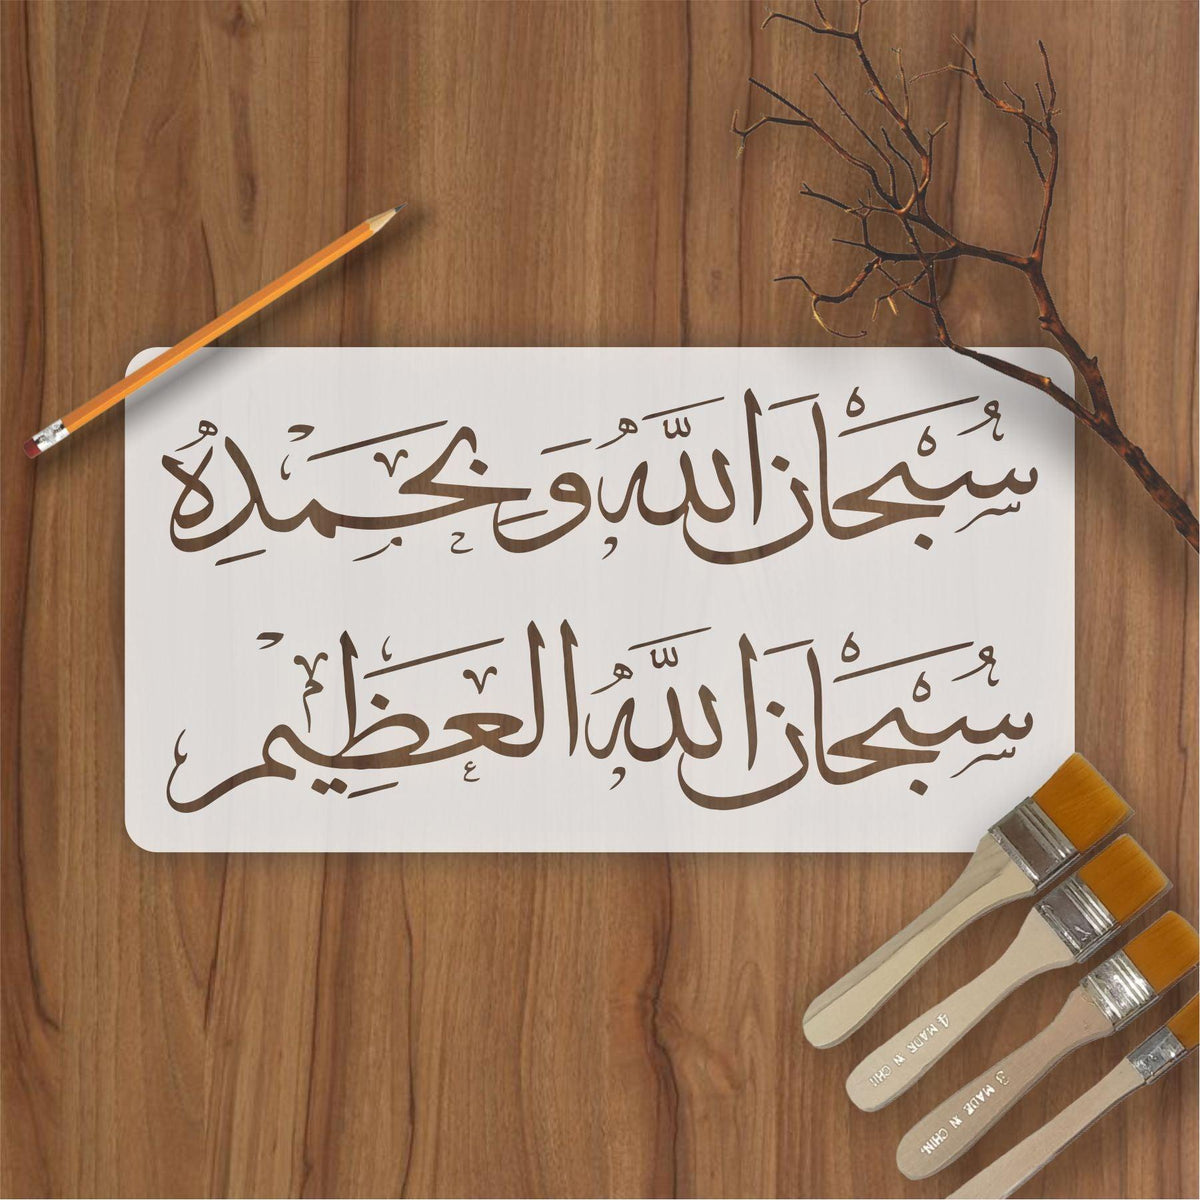 سُبْحَانَ اللَّهِ وَبِحَمْدِهِ
سُبْحَانَ اللَّهِ الْعَظِيمِ
4 MADE IN CHI
3 MADE IN CHIN.